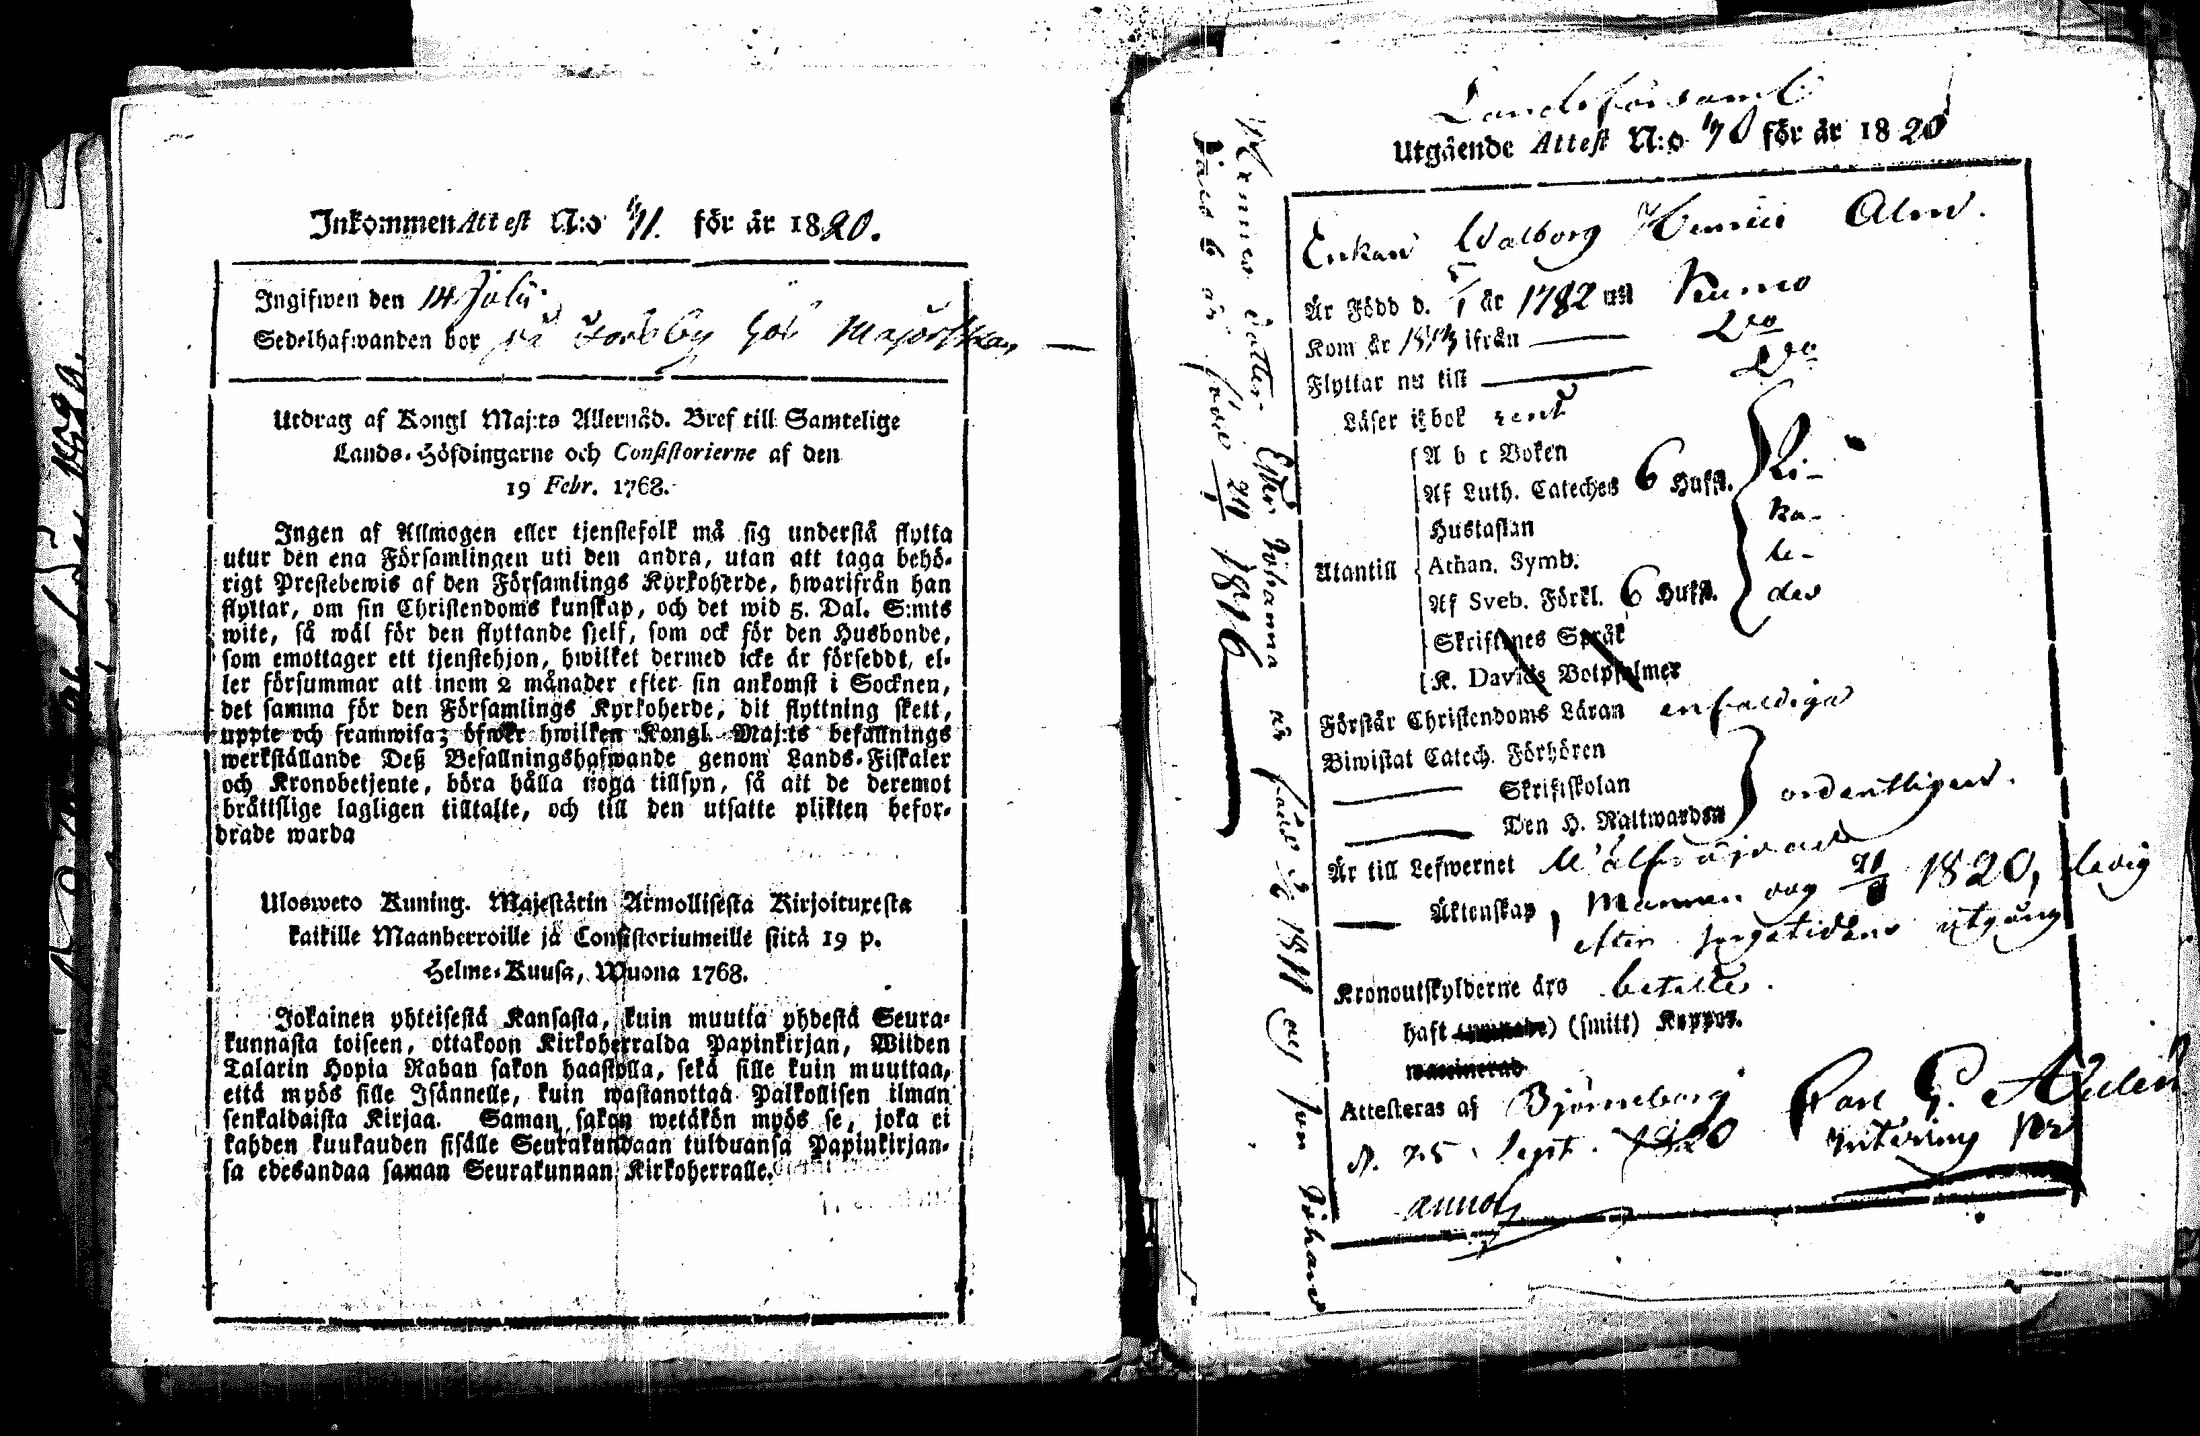 Inkommen Attest N:o 71. för år 1820.
Ingifwen den 14 Julii
Sedelhafwanden bor på hos Majorskan
Utdrag af Kongl Maj:ts Allernåd. Bref till Samtelige
Lands-Höfdingarne och Consistorierne af den
19 Febr. 1768.
Ingen af Allmogen eller tjenstefolk må sig understå flytta
utur den ena Församlingen uti den andra, utan att taga behö-
rigt Prestebewis af den Församlings Kyrkoherde, hwarifrån han
flyttar, om sin Christendoms kunskap, och det wid 5. Dal. S:mts
wite, så wäl för den flyttande sjelf, som ock för den Husbonde,
som emottager ett tjenstehjon, hwilket dermed icke är försedt, el-
ler försummar att inom 2 månader efter sin ankomst i Socknen,
det samma för den Församlings Kyrkoherde, dit flyttning skett,
uppte och framwisa; öfwer hwilken Kongl. Maj:ts befallnings
werkställande Deß Befallningshafwande genom Lands-Fiskaler
och Kronobetjente, böra hålla noga tillsyn, så att de deremot
bråttslige lagligen tilltalte, och till den utsatte plikten befor-
drade warda
Ulosweto Kuning. Majestätin Armollisesta Kirjoituxesta
kaikille Maanherroille ja Consistoriumeille siitä 19 p.
Helme-Kuusa, Wuona 1768.
Jokainen yhteisestä Kansasta, kuin muutta yhdestä Seura-
kunnasta toiseen, ottakoon Kirkoherralda Papinkirjan, Wiiden
Talarin Hopia Rahan sakon haastolla, sekä sille kuin muuttaa,
että myös sille Isännelle, kuin wastanottaa Palkollisen ilman
senkaldaista Kirjaa. Saman sakon wetäkön myös se, joka ei
kahden kuukauden sisälle Seurakundaan tulduansa Papinkirjan-
sa edesandaa saman Seurakunnan Kirkoherralle.
Landsförsaml
Utgående Attest N:o 70 för år 1820
Enkan Walborg Alm.
År Född d. 5/1 år 1782 uti Kumo
Kom år ifrån — Do
Flyttar nu till — Do
Läser i bok rent
A b c Boken
Af Luth. Cateches 6 Hufst.
Hustaflan
Utantill Athan. Symb.
Af Sveb. Förkl. 6 Hufst.
Skriftenes Språk
K. Davids Botpsalmer
Ri-
ka-
le-
des
Förstår Christendoms Läran enfaldiga
Biwistat Catech. Förhören
Skriftskolan
Den H. Nattwarden
ordentligen.
Är till Lefwernet Wälfräjdad
Äktenskap, Mannen dog 1820, ledig
efter sorgetidens utgång
Kronoutskylderne äro betalte.
haft (smitt) Koppor.
waccinerad
Attesteras af Björneborg
d. 25. Sept. 1820
Intering
annot
Hennes dotter Johanna är född 1811 och son Johan
född 1816